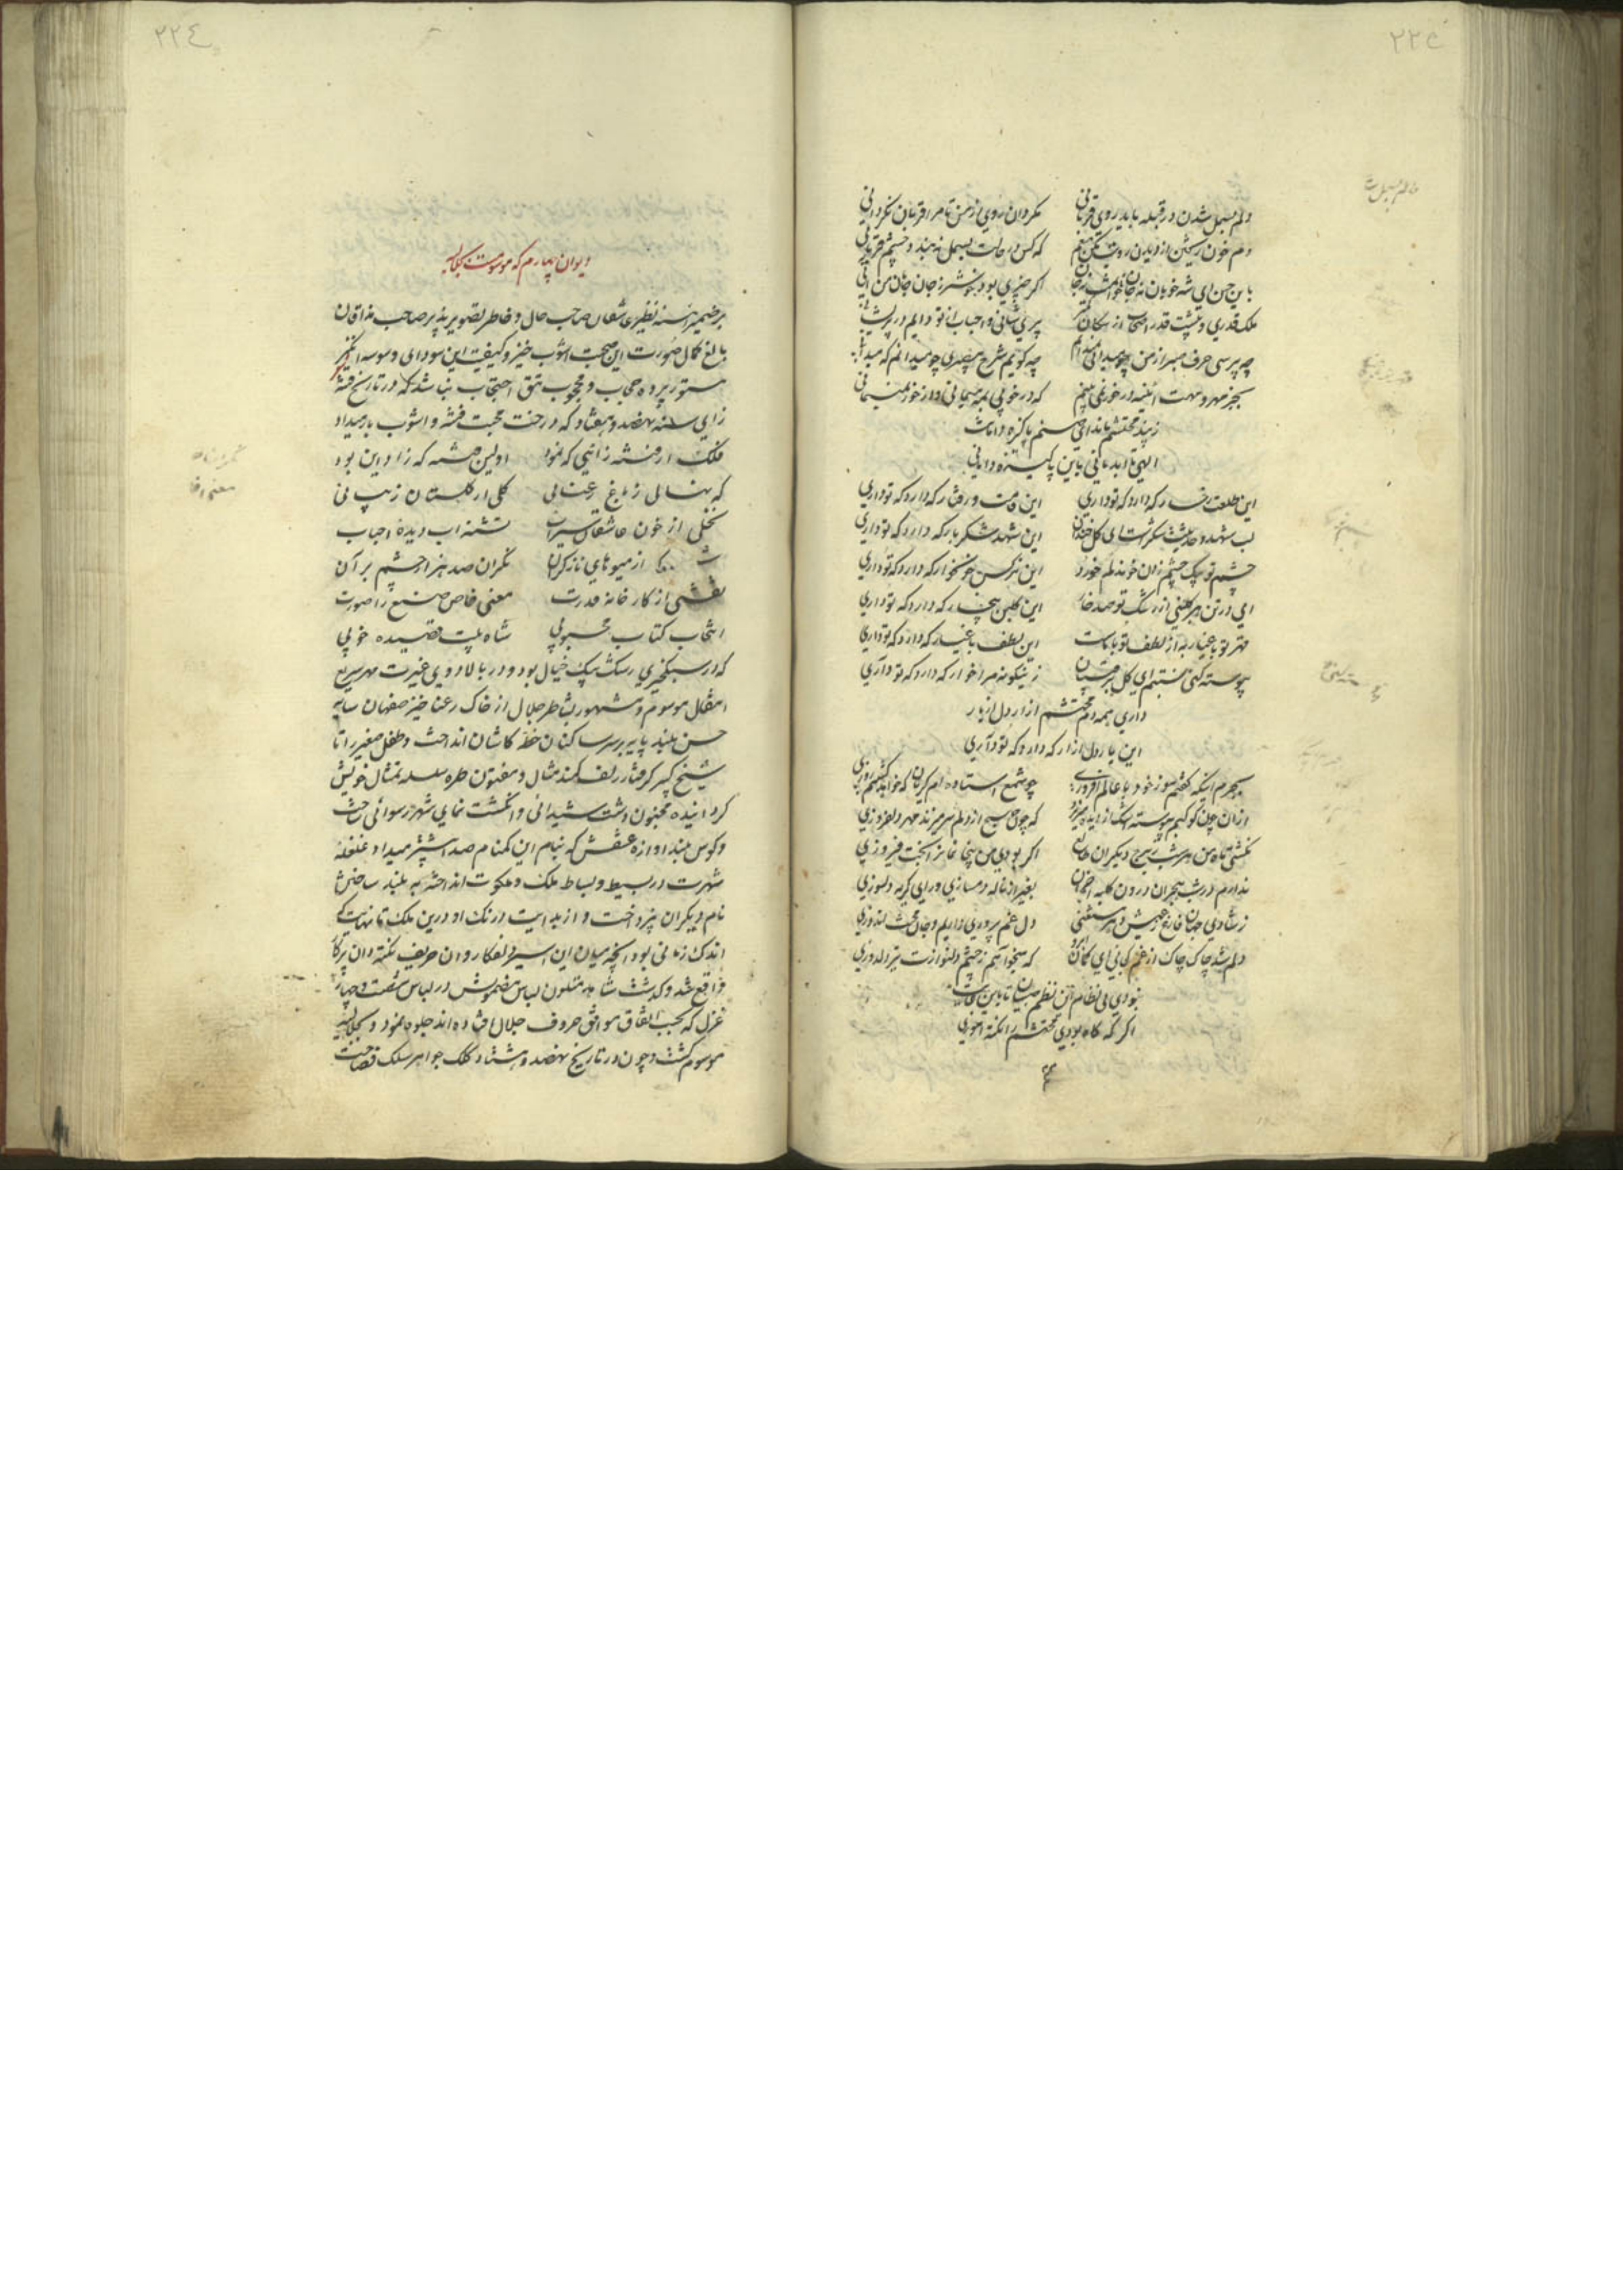 ۲۲۵
دلم بسمل شدن در قبله باید روی قربانی مگردان روی از من تا مرا قربان نگردانی
دم خون ریختن از دیدن رویت مکن منعم که کس در حالت بسمل نه بندد چشم قربانی
باین حسن ای شه خوبان نه جانان خوانمت نه جان اگر چیزی بود خوشتر ز جان جانان من آنی
ملک قدری و پیشت قدر اصحاب از سگان کمتر پری شانی و احباب از تو دایم در پریشانی
چه پرسی حرف صبر از من چو میدانی نمیدانم چه گویم شرح بیصبری چو میدانم که میدانی
بجز مهر و مهت آئینه در خور نمی بینم که در خوبی بمه میمانی و از خور نمیمانی
ز پند محتشم ماند آخر ای صنم پاکیزه دامانت
الهی تا ابد مانی باین پاکیزه دامانی
این طلعت و رخسار که دارد که تو داری این قامت و رفتار که دارد که تو داری
لب شهد و حدیثت شکرست ای گل خندان این شهد شکربار که دارد که تو داری
چشم تو بیک چشم زدن خون دلم خورد این نرگس خونخوار که دارد که تو داری
ای در تن هر گلبنی از رشک تو صد خار این گلبن بیخار که دارد که تو داری
قهر تو باغیار به از لطف تو با ماست این لطف باغیار که دارد که تو داری
پیوسته کنی خسته ام ای گل بر قیبان زینگونه مرا خوار که دارد که تو داری
داری همه دم محتشم آزار دل از یار
این یار دل آزار که دارد که تو داری
بجرم اینکه گفتم سوز خود با عالم افروزی چو شمع استاده ام گریان که خواهد کشتنم روزی
از آن چون کوکبم پیوسته اشک از دیده میریزد که چون صبح از دلم سر میزند مهر دل افروزی
نگشتی ماه من هر شب ز برج دیگران طالع اگر بودی من بیخانمان را بخت فیروزی
ندارم در شب هجران درون کلبه احزان بغیر از ناله دمسازی ورای گریه دلسوزی
ز شادی جهان فارغ ز عیش دهر مستغنی دل غم پروری داریم و جان محنت اندوزی
دلم شد چاک چاک از غم کجائی ای کمان ابرو که میخواهم ز چشم دلنوازت تیر دلدوزی
نبودی بی نظام این نظم صبیان تا باین غایت
اگر گه گاه بودی محتشم را نکته آموزی
۲۲٤
دیوان چهارم که موسومست بجلالیه
بر ضمیر آئینه نظیر عاشقان صاحب حال و خاطر تصویر پذیر صاحب مذاقان
بالغ کمال صورت این صحبت آشوب خیز و کیفیت این سودای وسوسه انگیز
مستور پرده حجاب و محجوب تتق احتجاب نباشد که در تاریخ فتنه
زای سنه نهصد و هفتاد که درخت محبت فتنه و آشوب بار میداد
فلک از فتنه زائیی که نمود اولین فتنه که زاد این بود
که نهالی ز باغ رعنائی گلی از گلستان زیبائی
نخلی از خون عاشقان سیراب تشنه آب دیده احباب
از میوهای نازگران نگران صد هزار چشم بر آن
نقشی از کارخانه قدرت معنی خاص صنع را صورت
انتخاب کتاب محبوبی شاه بیت قصیده خوبی
که در سبکخیزی رشک پیک خیال بود و در بالادوی غیرت مهر سریع
انتقال موسوم و مشهور بشاطر جلال از خاک رعنا خیز صفهان سایه
حسن بلند پایه بر سر ساکنان خطه کاشان انداخت و طفل صغیر را تا
شیخ کبیر گرفتار زلف کمند مثال و مفتون طره سلسله تمثال خویش
گردانیده مجنون دشت شیدائی و انگشت نمای شهر رسوائی ساخت
و کوس بلند آوازه عشقش که بنام این گمنام صدا بیشتر میداد غلغله
شهرت در بسیط و بساط ملک و ملکوت انداخته به بلند ساختن
نام دیگران نپرداخت و از بدایت درنگ او درین ملک تا نهایت که
اندک زمانی بود آنچه میان این اسیر دلفکار و آن حریف نکته دان پرکار
واقع شد و گذشت شاهد متلون لباس مضمونش در لباس شصت و چهار
غزل که بحسب اتفاق موافق حروف جلال افتاده اند جلوه نمود و بجلالیه
موسوم گشت و چون در تاریخ نهصد و هشتاد کلک جواهر سلک فصاحت